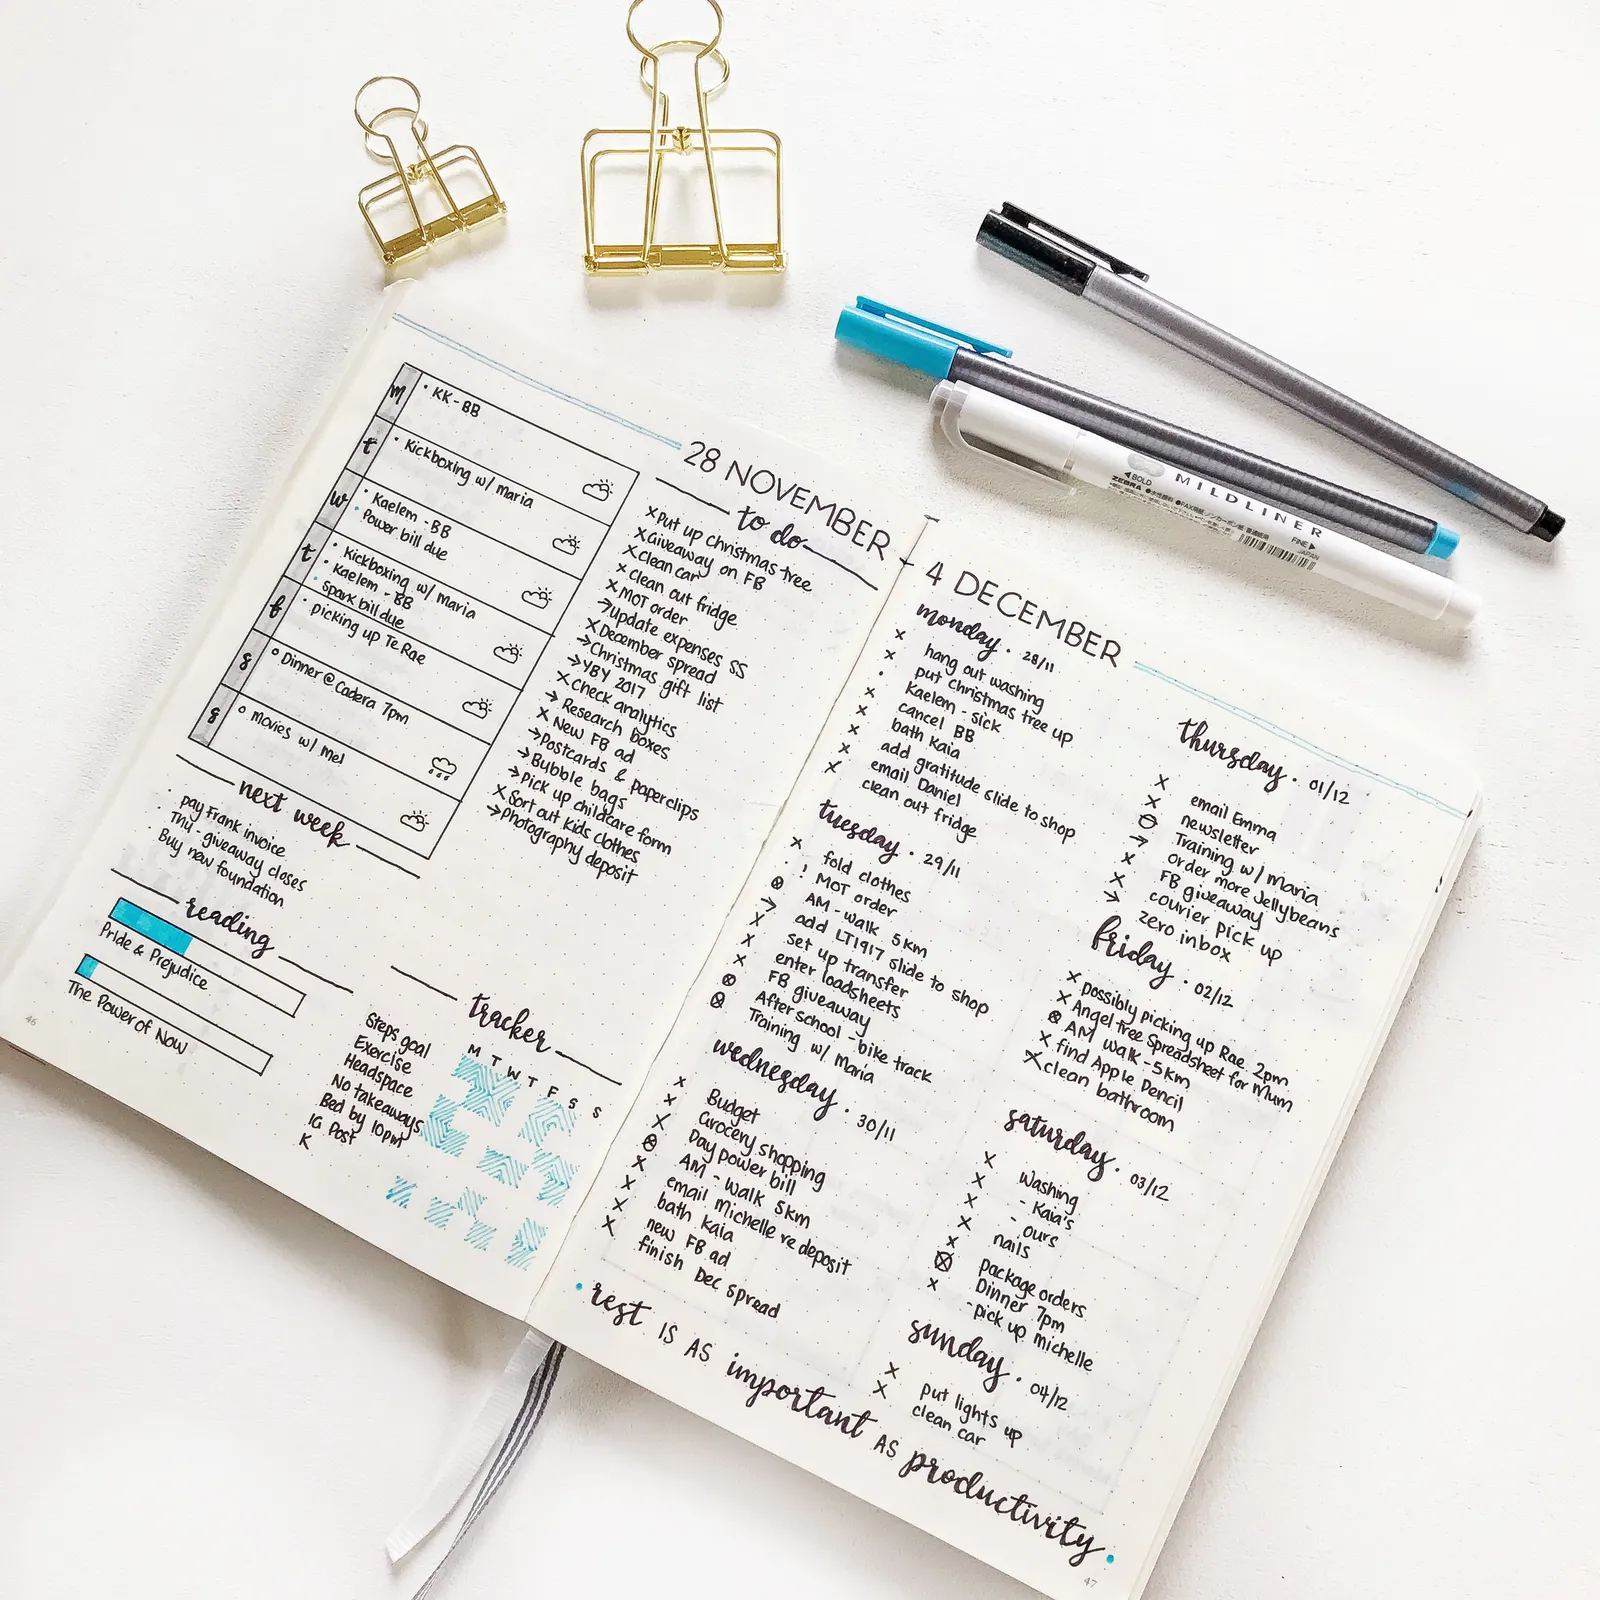 28 NOVEMBER
m
• KK - BB
t
• Kickboxing w/ maria
w
• Kaelem - BB
• Power bill due
t
• Kickboxing w/ maria
• Kaelem - BB
• Spark bill due
f
• picking up Te Rae
s
o Dinner @ Cadera 7pm
s
o movies w/ me!
next week
• pay Frank invoice
• Thu - giveaway closes
• Buy new foundation
reading
Pride & Prejudice
The Power of Now
to do
x Put up christmas tree
x Giveaway on FB
x Clean car
x Clean out fridge
x MOT order
→ Update expenses SS
x December spread
→ Christmas gift list
→ YBY 2017
x Check analytics
→ Research boxes
x New FB ad
→ Postcards & paperclips
→ Bubble bags
→ Pick up childcare form
x Sort out kids clothes
→ Photography deposit
tracker
M T W T F S S
Steps goal
Exercise
Headspace
No takeaways
Bed by 10pm
IG Post
K
46
4 DECEMBER
monday • 28/11
x hang out washing
x put Christmas tree up
• Kaelem - sick
x cancel BB
x bath Kaia
x add gratitude slide to shop
x email Daniel
x clean out fridge
tuesday • 29/11
x fold clothes
• ! MOT order
⊗ AM - walk 5km
→ add LT1917 slide to shop
x set up transfer
x enter loadsheets
x FB giveaway
⊗ After school - bike track
⊗ Training w/ Maria
wednesday • 30/11
x Budget
x Grocery shopping
x Day power bill
⊗ AM - walk 5km
x email Michelle re deposit
x bath Kaia
x new FB ad
x finish Dec spread
thursday • 01/12
x email Emma
x newsletter
⊖ Training w/ maria
→ order more Jellybeans
x FB giveaway
x courier pick up
→ zero inbox
friday • 02/12
x possibly picking up Rae 2pm
x Angel tree Spreadsheet for Mum
⊗ AM walk - 5km
x find Apple Pencil
x clean bathroom
saturday • 03/12
x washing
x - Kaia's
x - ours
x nails
x package orders
⊗ Dinner 7pm
x - pick up michelle
sunday • 04/12
x put lights up
x clean car
• rest IS AS important AS productivity •
47
◀BOLD
ZEBRA
MILDLINER
FINE▶
JAPAN